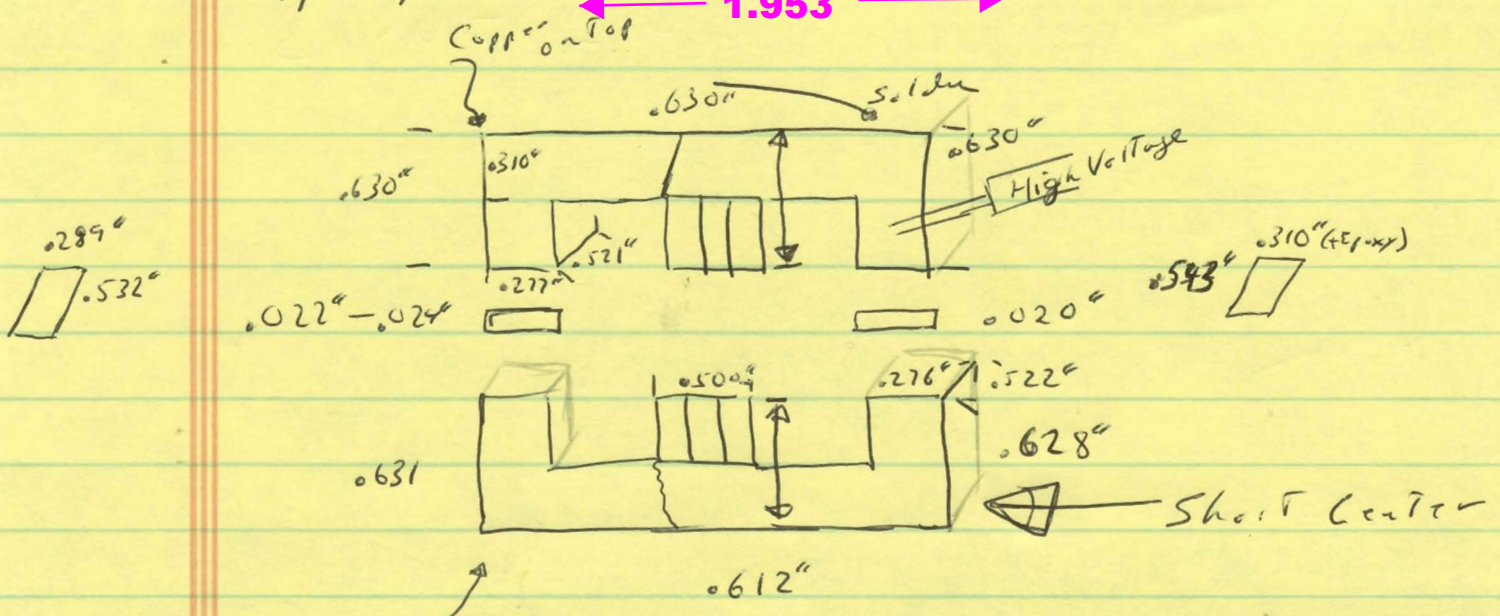 1.953
Copper on Top
.630"
Solder
.310"
.630"
.630"
High Voltage
.289"
.532"
.521"
.277"
.310" (+Epoxy)
.543"
.022" – .024"
.020"
.500"
.276"
.522"
.628"
.631
Short Center
.612"